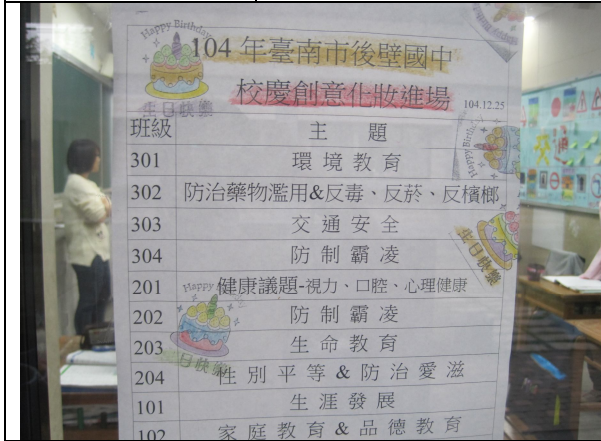 Happy Birthday
104 年臺南市後壁國中
校慶創意化妝進場
104.12.25
生日快樂
班級 主 題
301 環境教育
302 防治藥物濫用&反毒、反菸、反檳榔
303 交通安全
304 防制霸凌
生日快樂
201 健康議題-視力、口腔、心理健康
Happy
202 防制霸凌
203 生命教育
日快樂
204 性別平等&防治愛滋
101 生涯發展
102 家庭教育&品德教育